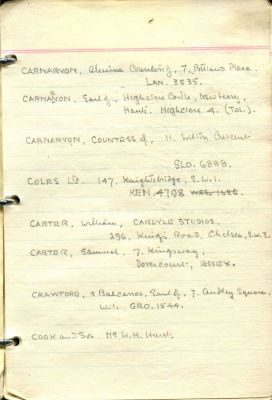 CARNARVON, Almina Countess of, 7, Portland Place.
LAN. 3535.
CARNARVON, Earl of, Highclere Castle, Newberry,
Hants. Highclere 4. (Tol.).
CARNARVON, COUNTESS of, 11. Wilton Crescent.
SLO. 6888.
COLES Ltd. 147, Knightsbridge, S.W.1.
KEN. 4798
CARTER, William, CARLYLE STUDIOS.
296, King's Road, Chelsea, S.W.3.
CARTER, Samuel, 7. Kingsway,
Dovercourt, ESSEX.
CRAWFORD, & Balcarres, Earl of, 7. Audley Square,
W.1. GRO. 1544.
COOK and Son. Mr W. H.